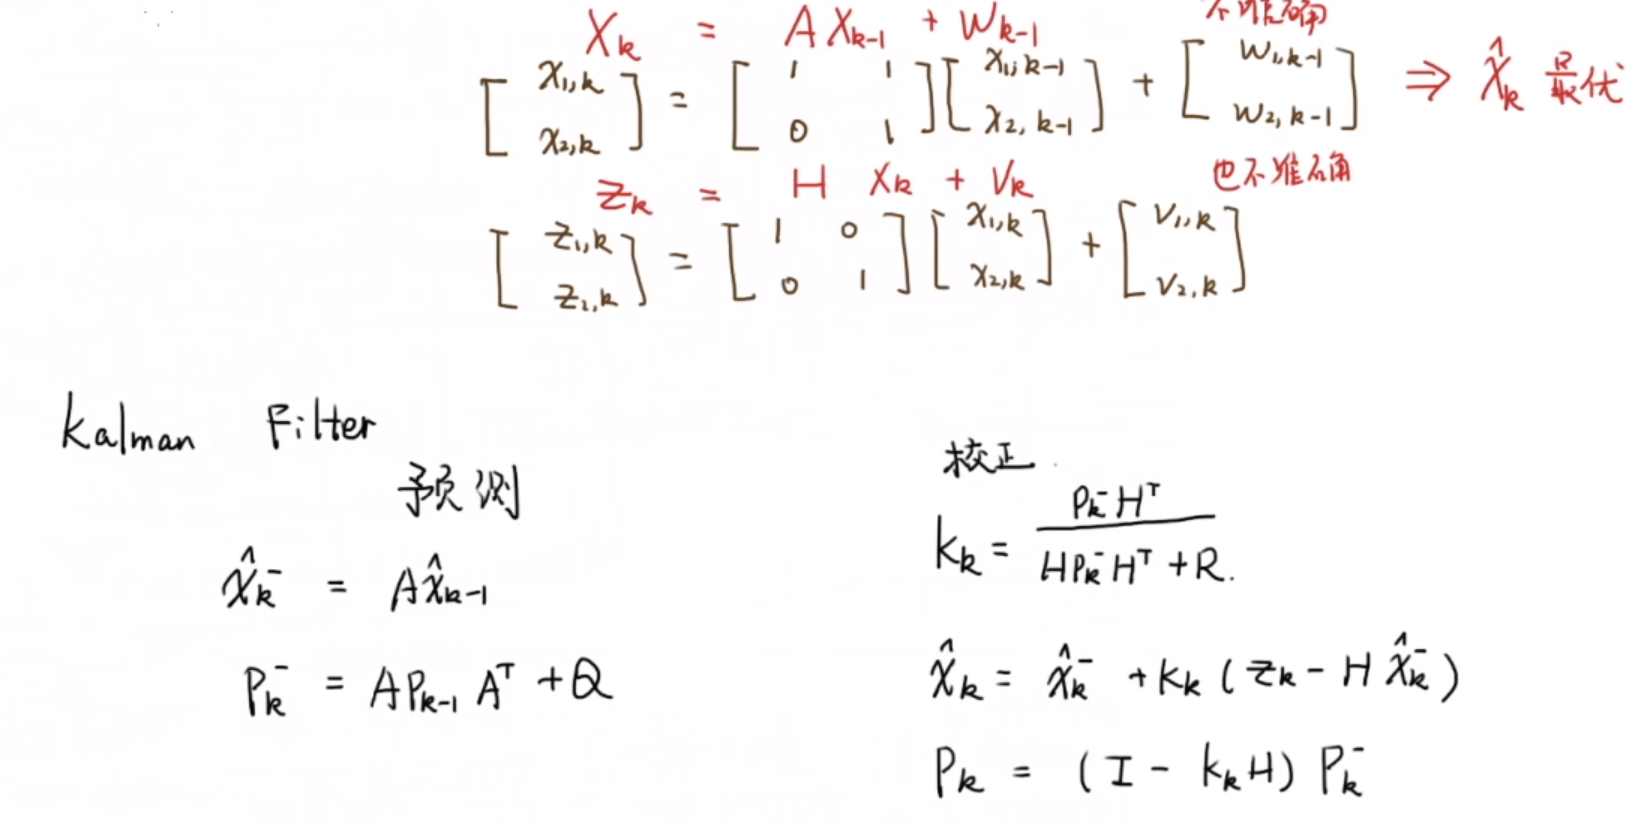 不准确
X_k = A X_{k-1} + W_{k-1}
[x_{1,k} ; x_{2,k}] = [1 1 ; 0 1] [x_{1,k-1} ; x_{2,k-1}] + [w_{1,k-1} ; w_{2,k-1}] ⇒ X̂_k 最优
也不准确
z_k = H X_k + V_k
[z_{1,k} ; z_{2,k}] = [1 0 ; 0 1] [x_{1,k} ; x_{2,k}] + [v_{1,k} ; v_{2,k}]
Kalman Filter
预测
x̂_k^- = A x̂_{k-1}
P_k^- = A P_{k-1} A^T + Q
校正
K_k = P_k^- H^T / (H P_k^- H^T + R).
x̂_k = x̂_k^- + K_k (z_k - H x̂_k^-)
P_k = (I - K_k H) P_k^-